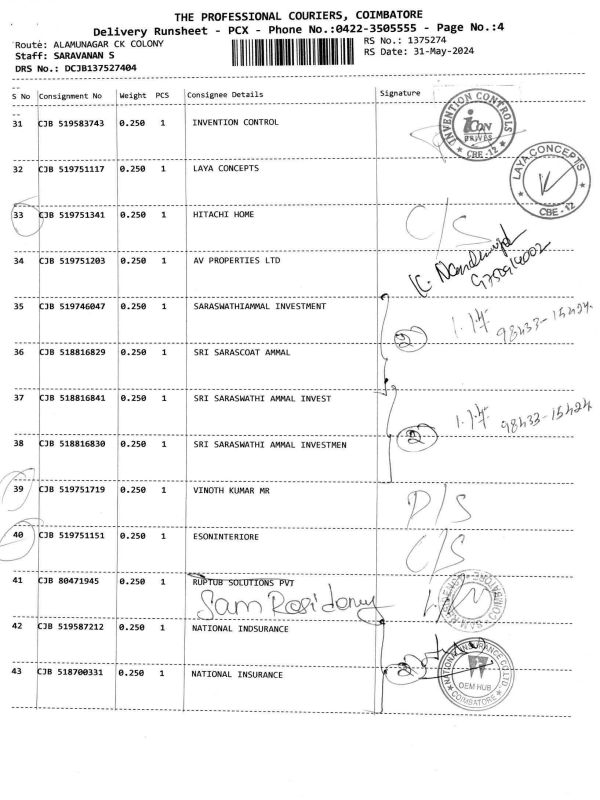 THE PROFESSIONAL COURIERS, COIMBATORE
Delivery Runsheet - PCX - Phone No.:0422-3505555 - Page No.:4
Route: ALAMUNAGAR CK COLONY
RS No.: 1375274
Staff: SARAVANAN S
RS Date: 31-May-2024
DRS No.: DCJB137527404
S No Consignment No Weight PCS Consignee Details Signature
31 CJB 519583743 0.250 1 INVENTION CONTROL
INVENTION CONTROLS
icon
DRIVES
CBE-12
32 CJB 519751117 0.250 1 LAYA CONCEPTS
LAYA CONCEPTS
CBE-12
33 CJB 519751341 0.250 1 HITACHI HOME C/S
34 CJB 519751203 0.250 1 AV PROPERTIES LTD
35 CJB 519746047 0.250 1 SARASWATHIAMMAL INVESTMENT
2 98433-15424
36 CJB 518816829 0.250 1 SRI SARASCOAT AMMAL
37 CJB 518816841 0.250 1 SRI SARASWATHI AMMAL INVEST
2 98433-15424
38 CJB 518816830 0.250 1 SRI SARASWATHI AMMAL INVESTMEN
39 CJB 519751719 0.250 1 VINOTH KUMAR MR D/S
40 CJB 519751151 0.250 1 ESONINTERIORE C/S
41 CJB 80471945 0.250 1 RUPTUB SOLUTIONS PVT
Sam Residency
42 CJB 519587212 0.250 1 NATIONAL INDSURANCE
43 CJB 518700331 0.250 1 NATIONAL INSURANCE
2
NATIONAL INSURANCE CO LTD
OEM HUB
COIMBATORE